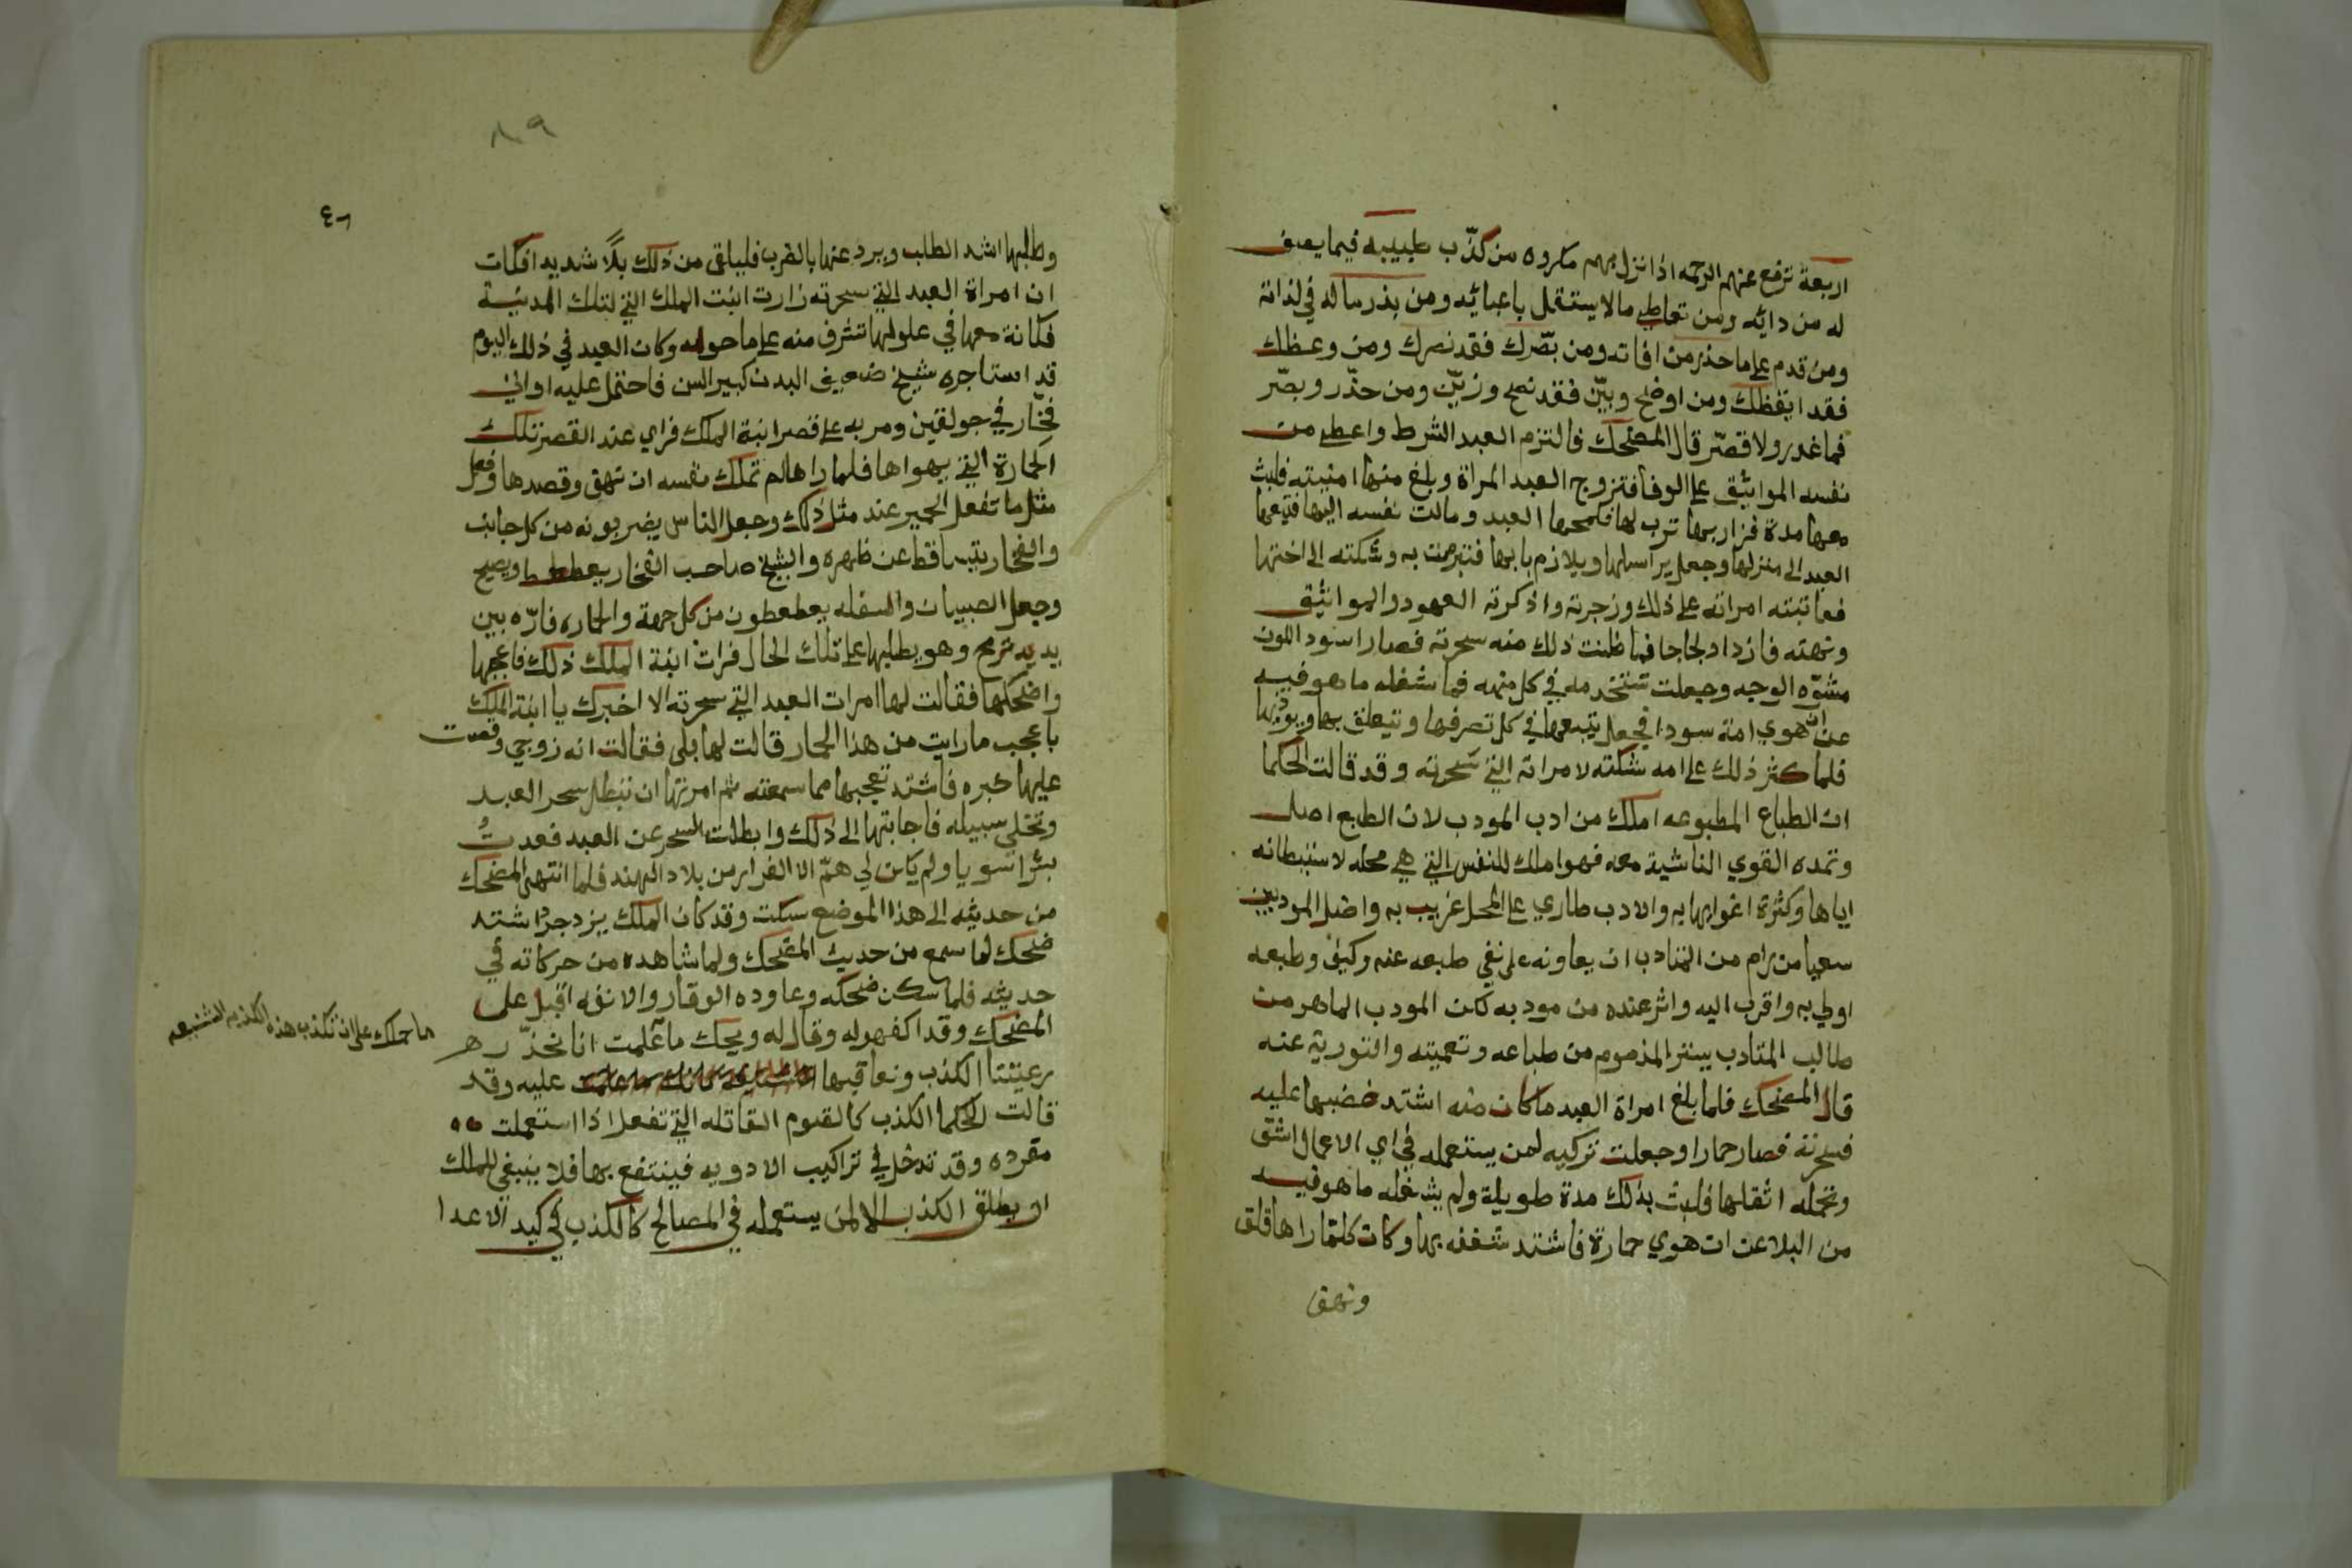 اربعة ترفع عنهم الرحمه اذا نزل بهم مكروه من كذّب طبيبه فيما يصف
له من دايه ومن تعاطى مالا يستقل باعبائه ومن بذر ماله في لذاته
ومن قدم على ما حذر من افاته ومن بصّرك فقد نصرك ومن وعظك
فقد ايقظك ومن اوضح وبيّن فقد نصح وزيّن ومن حذّر وبصّر
فما غدر ولا قصّر قال المضحك فالتزم العبد الشرط واعطى من
نفسه المواثيق على الوفا فتزوج العبد المراة وبلغ منها امنيته فلبث
معها مدة فزاربها ترب لها فلمحها العبد ومالت نفسه اليها فتبعها
العبد الى منزلها وجعل يراسلها ويلازم بابها فتبرمت به وشكته الى اختها
فعاتبته امراته على ذلك وزجرته واذكرته العهود والمواثيق
ونهته فازداد لجاجا فلما ظنت ذلك منه سحرته فصار اسود اللون
مشوّه الوجه وجعلت تستخدمه في كل مهنه فما شغله ما هو فيه
عن ان هوي امة سودا فجعل يتبعها في كل تصرفها ويتعلق بها ويوذيها
فلما كثر ذلك على امه شكته لامراته التي سحرته وقد قالت الحكما
ان الطباع المطبوعه املك من ادب المودب لان الطبع اصلي
وتمده القوي الناشية معه فهو املك للنفس التي هي محله لاستبطانه
اياها وكثرة اغوايها به والادب طاري على المحل غريب به واضل المودبين
سعيا من رام من المتادب ان يعاونه على نفي طبعه عنه وكيف وطبعه
اولي به واقرب اليه واثر عنده من مودبه لكن المودب الماهر من
طالب المتادب بستر المذموم من طباعه وتعميته والتورية عنه
قال المضحك فلما بلغ امراة العبد ما كان منه اشتد غضبها عليه
فسحرته فصار حمارا وجعلت تركيه لمن يستعمله في اي الاعمال اشق
وتحمله اثقلها فلبث بذلك مدة طويلة ولم يشغله ما هو فيه
من البلا عن ان هوي حمارة فاشتد شغفه بها وكان كلما راها قلق
ونهق
٨٩
٤٦
وطلبها اشد الطلب ويرد عنها بالضرب فليلقى من ذلك بلاً شديدا فكان
ان امراة العبد التي سحرته زارت ابنت الملك التي لتلك المدينة
فكانة معها في علو لها تشرف منه على ما حوله وكان العبد في ذلك اليوم
قد استاجره شيخ ضعيف البدن كبير السن فاحتمل عليه اواني
فخّار في جولقين ومر به على قصر ابنة الملك فراي عند القصر تلك
الحمارة التي يهواها فلما راها لم تملك نفسه ان نهق وقصدها وفعل
مثل ما تفعل الحمير عند مثل ذلك وجعل الناس يضربونه من كل جانب
والفخار يتساقط عن ظهره والشيخ صاحب الفخار يعطعط ويصيح
وجعل الصبيان والسفله يعطعطون من كل جهة والحماره فارّه بين
يديه ترمح وهو يطلبها على تلك الحال فرات ابنة الملك ذلك فاعجبها
واضحكها فقالت لها امرات العبد التي سحرته الا اخبرك يا ابنة الملك
باعجب ما رايت من هذا الحمار قالت لها بلى فقالت انه زوجي وقصت
عليها خبره فاشتد تعجبها مما سمعته ثم امرتها ان تبطل سحر العبد
وتخلي سبيله فاجابتها الى ذلك وابطلت السحر عن العبد فعدتُ
بشرا سويا ولم يكن لي همّ الا الفرار من بلاد الهند فلما انتهى المضحك
من حديثه الى هذا الموضع سكت وقد كان الملك يزدجرد اشتد
ضحك لما سمع من حديث المضحك ولما شاهده من حركاته في
حديثه فلما سكن ضحكه وعاوده الوقار والانفه اقبل على
المضحك وقد اكفهر له وقال له ويحك ما علمت انا نحذّر
ما حملك على ان تكذب هذه الكذبه الشنيعه
رعيتنا الكذب ونعاقبها عليه وقد
قالت الحكما الكذب كالسموم القاتله التي تفعل اذا استعملت
مفرده وقد تدخل في تراكيب الادويه فينتفع بها فلا ينبغي للملك
ان يطلق الكذب الا لمن يستعمله في المصالح كالكذب في كيد الاعدا